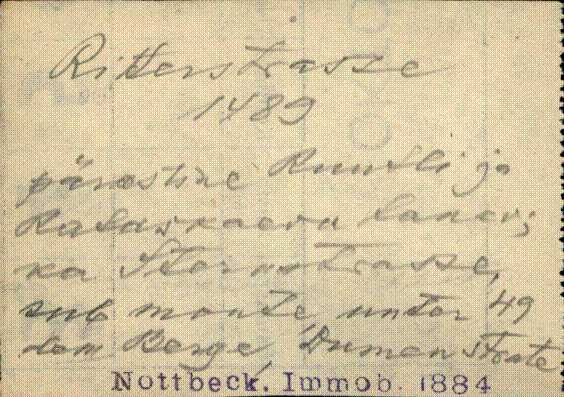 Ritterstrasse
1489
pärastine Ruutli ja
Rataskaevu tänav;
ka Sternstrasse,
sub monte, unter 49
dem Berge, Dumen strate
Nottbeck. Immob. 1884